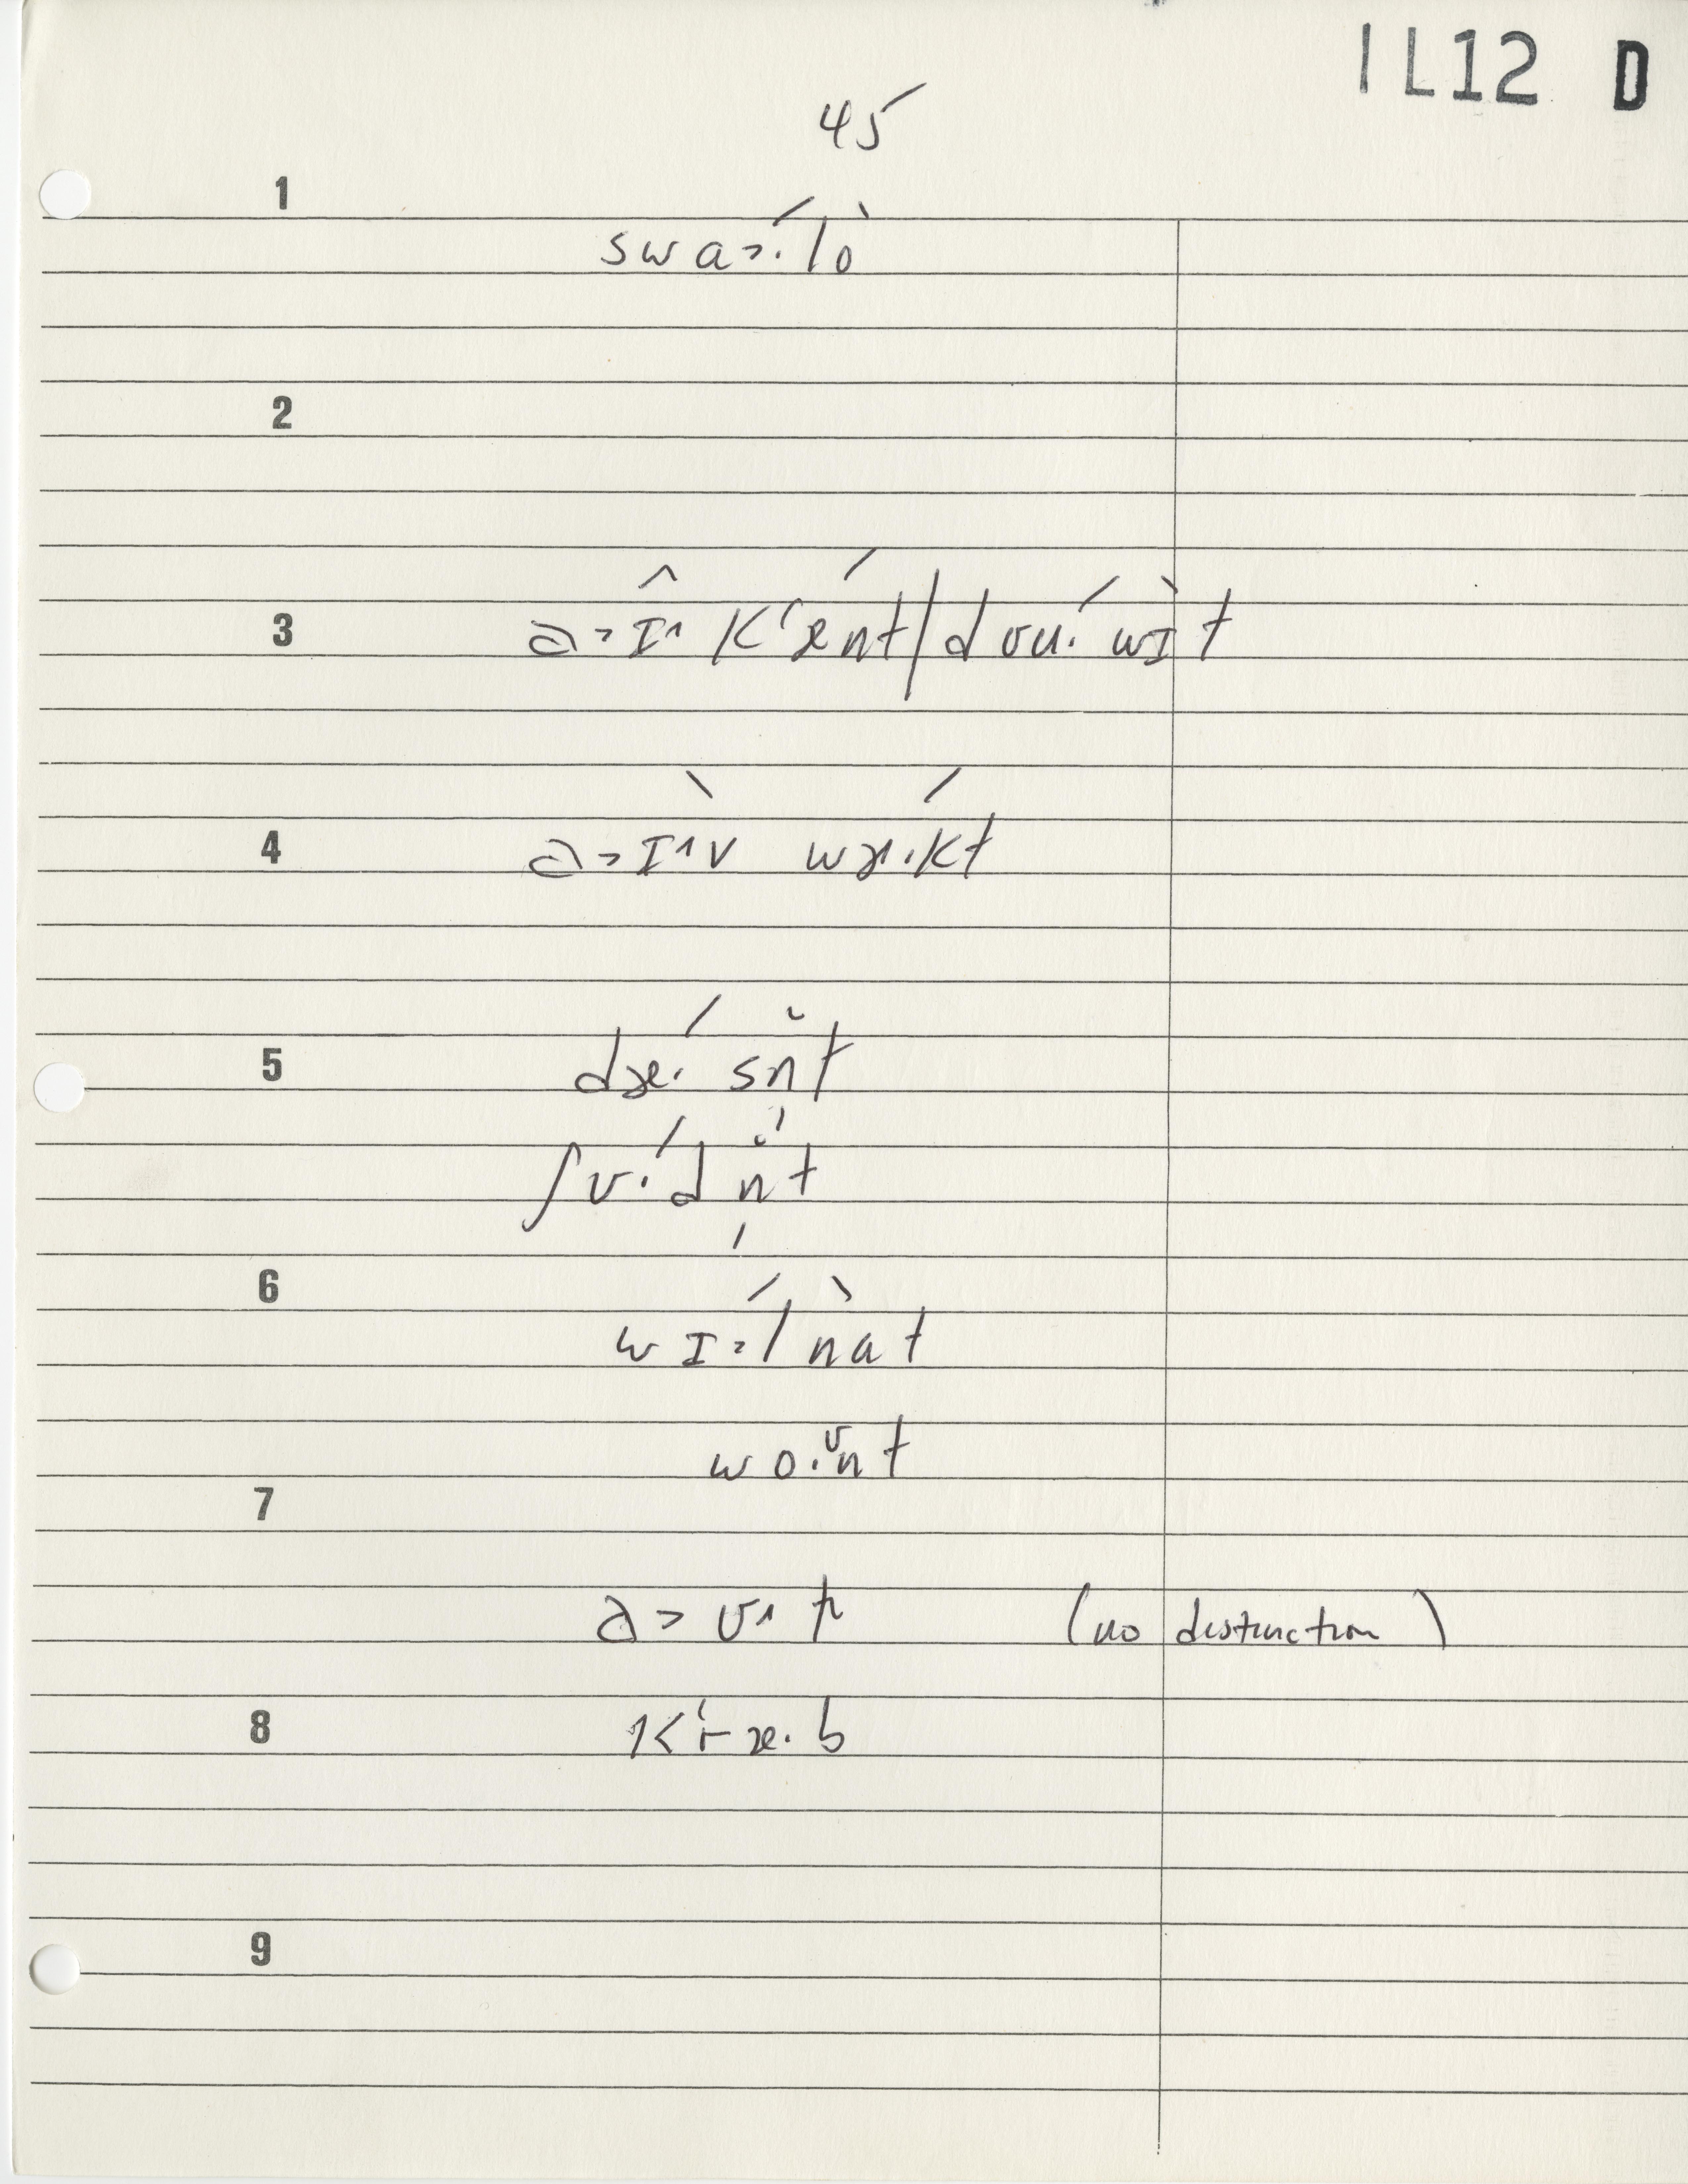 1L12 D
45
1
swɑ˃·́lò
2
3
ɑ˃ɪ̂˄ kʻǽnt/dʊu·́wɪ̀t
4
ɑ˃ɪ̀˄v wɝ́·kt
5
dɝ́· sn̩̆t
ʃʊ́·d n̩̆t
6
wɪ˃́l nɑ̀t
wo·ʊnt
7
ɑ˃ʊ˄t (no distinction)
8
kʻræ·b
9